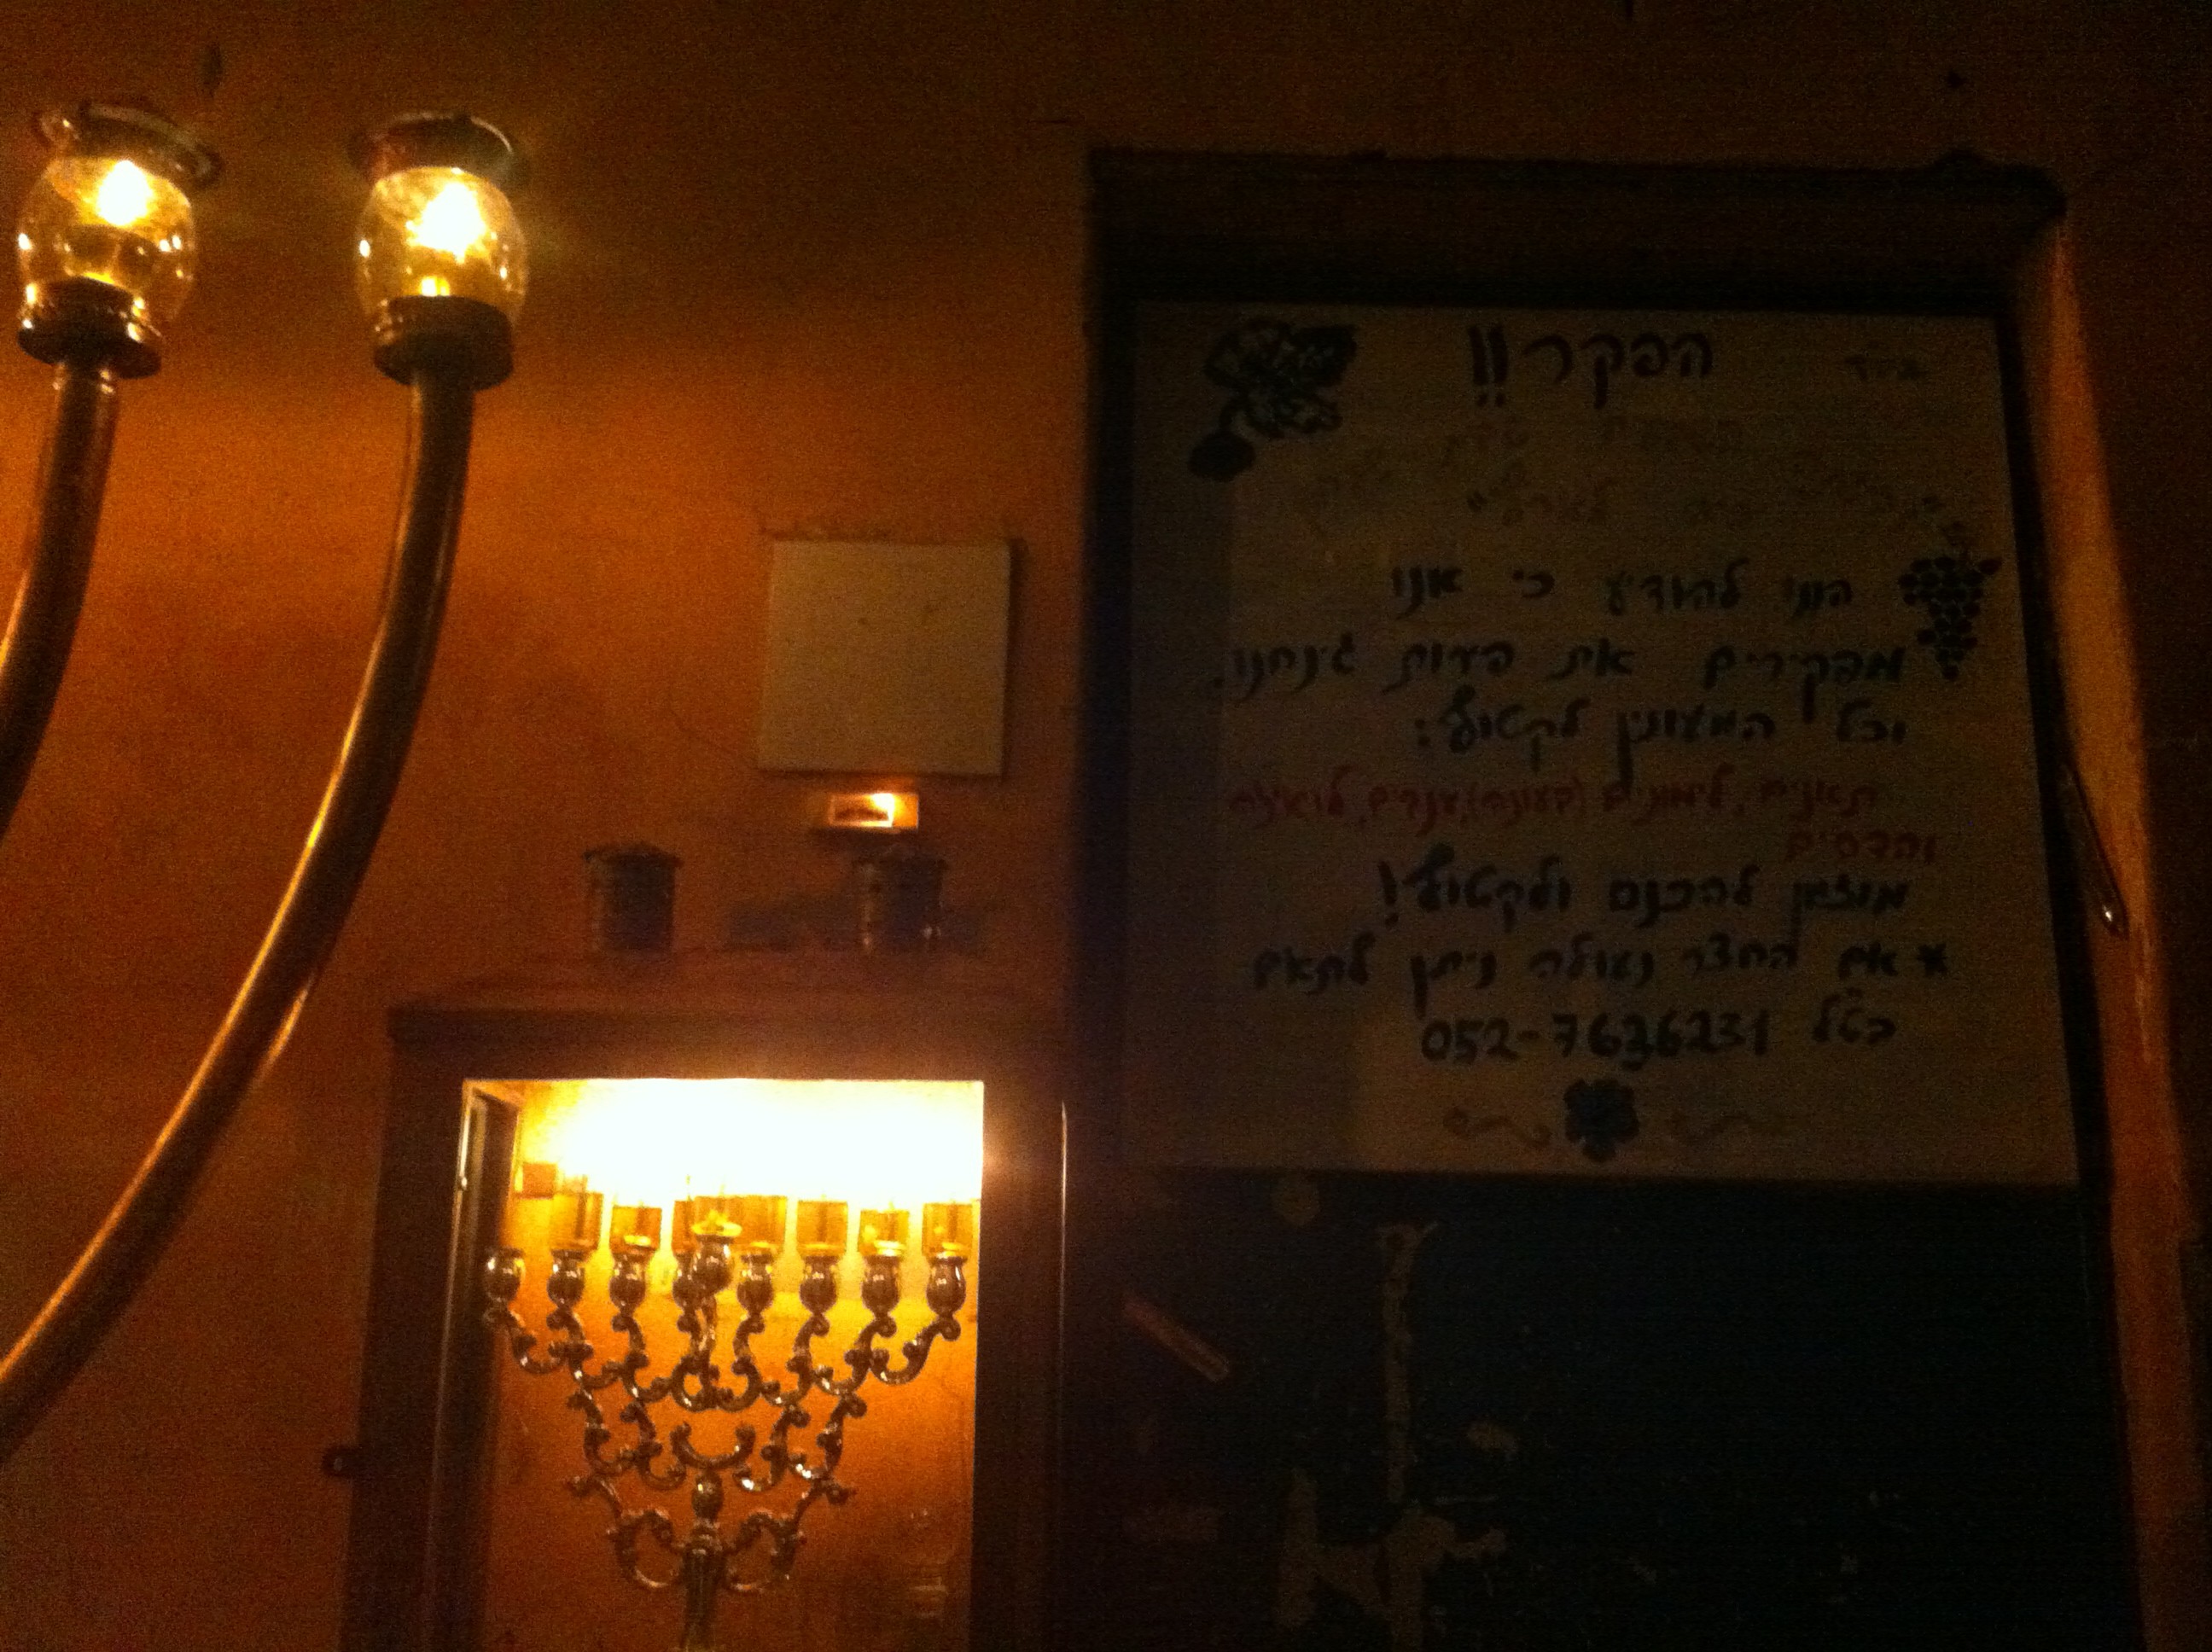 בס"ד
הפקר!!
הננו להודיע כי אנו
מפקירים את פירות גינתנו.
וכל המעונין לקטוף:
תאנים, לימונים (בעונה), ענבים, לואיזה
והדסים
מוזמן להכנס ולקטוף!
* אם החצר נעולה ניתן לתאם
בטל 052-7636231